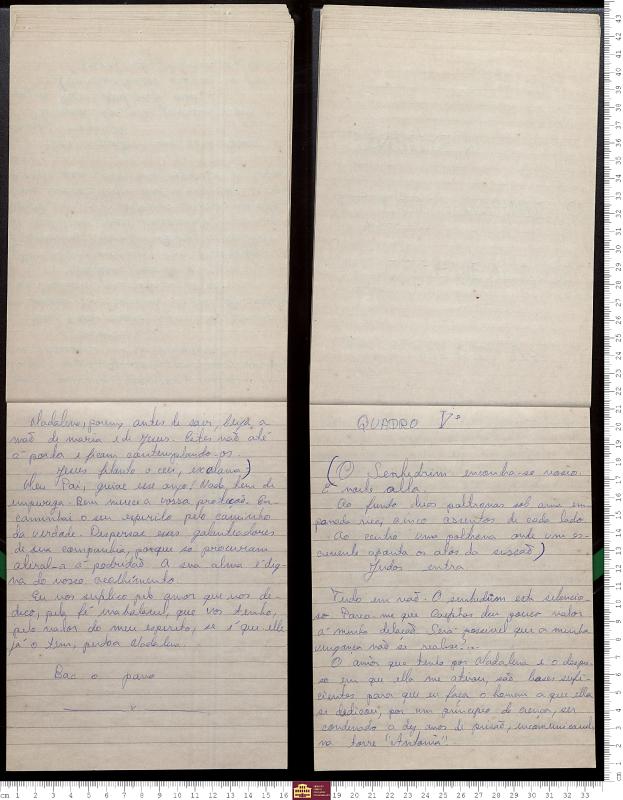 Madalena, porem, antes de sair, beija a
mão de maria e de Jesus. Estes vão até
á porta e ficam contemplando-os.
Jesus fitando o ceu, exclama)
Meu Pai, guiae esse anjo! Nada tem de
impureza. Bem merece a vossa proteção. En-
caminhai o seu espirito pelo caminho
da verdade. Dispersae esses galanteadores
de sua companhia, porque só procuram
atiral-a á podridão. A sua alma é dig-
na do vosso acolhimento.
Eu vos suplico pelo amor que vos de-
dico, pela fé inabalavel, que vos tenho,
pelo valor do meu espirito, se é que elle
já o tem, perdoa Madalena.
Bae o pano
QUADRO Vº
(O Senhedrim encontra-se vasio.
É noite alta.
Ao fundo duas poltronas sob uma em-
panada rica, cinco assentos de cada lado.
Ao centro uma poltrona onde um es-
crevente aponta os atos da sessão)
Judas entra.
Tudo em vão. O senhedrim está silencio-
so. Parece-me que Caiphás deu pouco valor
á minha delação. Será possivel que a minha
vingança não se realise?...
O amor que tenho por Madalena e o despre-
so em que ella me atirou, são bases sufi-
cientes para que eu faça o homem a que ella
se dedicou, por um principio de crença, ser
condenado a dez anos de prisão, incomunicavel
na torre "Antonia".